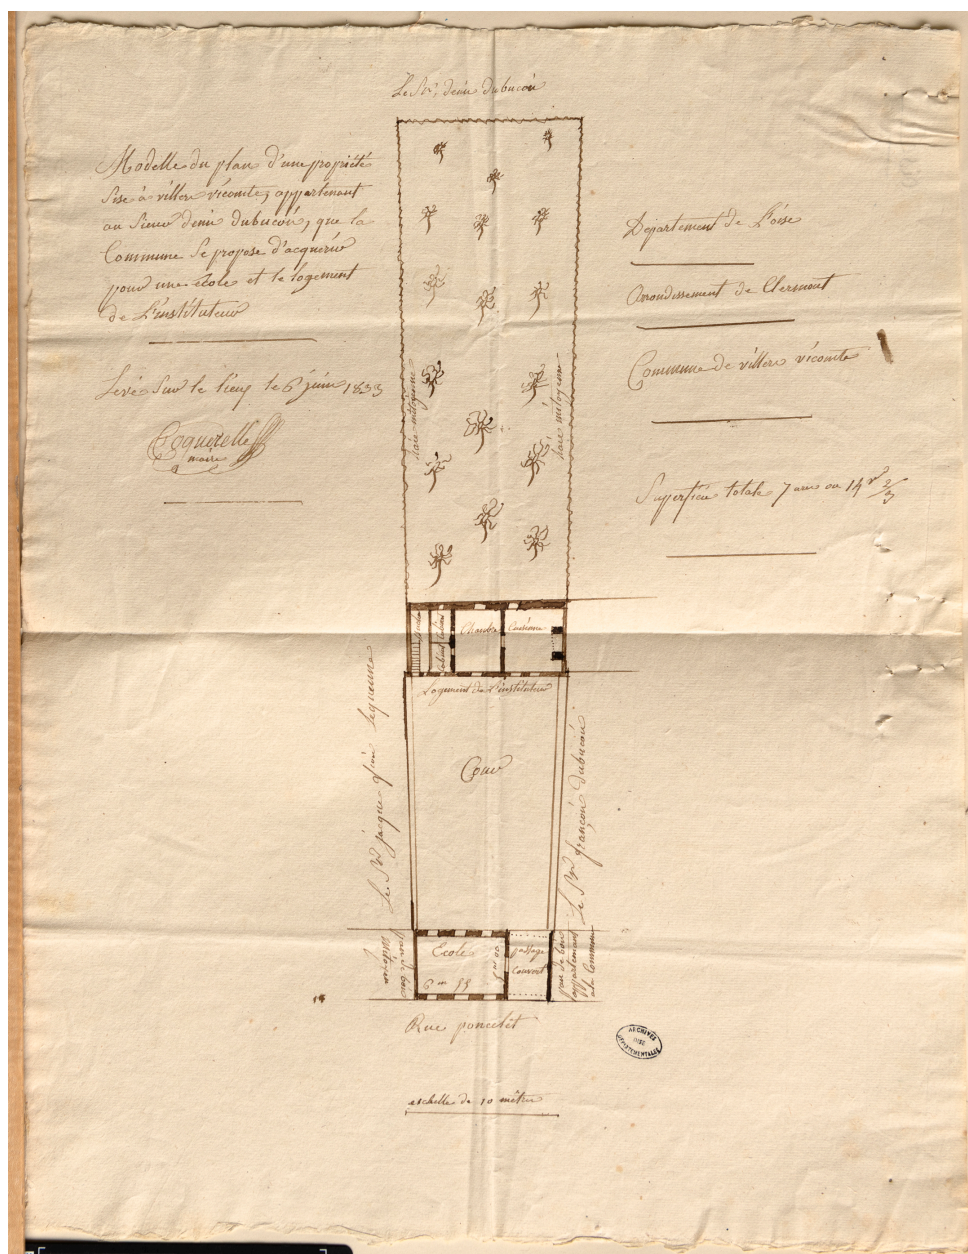 Le Sr. denis dubucourt
Modelle du plan d'une propriété
Sise à villers vicomte, appartenant
au Sieur denis dubucourt, que la
Commune Se propose d'acquerir
pour une école et le logement
de L'instituteur
Levé Sur le lieux le 6 juin 1833
Coquerelle
maire
Département de L'oise
Arrondissement de Clermont
Commune de villers vicomte
Superficie totale 7 ares ou 14 v 2/3
haie mitoyenne
haie mitoyenne
Cabinet
Cabinet
Chambre
Cuisine
Logement de L'instituteur
Cour
Le Sr jacque
Le Sr françois dubucourt
Ecole
6 m 55
5 m 00
passage
couvert
mitoyen
pan de bois
appartenant
a la Commune
Rue poncelet
eschelle de 10 mètres
ARCHIVES
OISE
DÉPARTEMENTALES